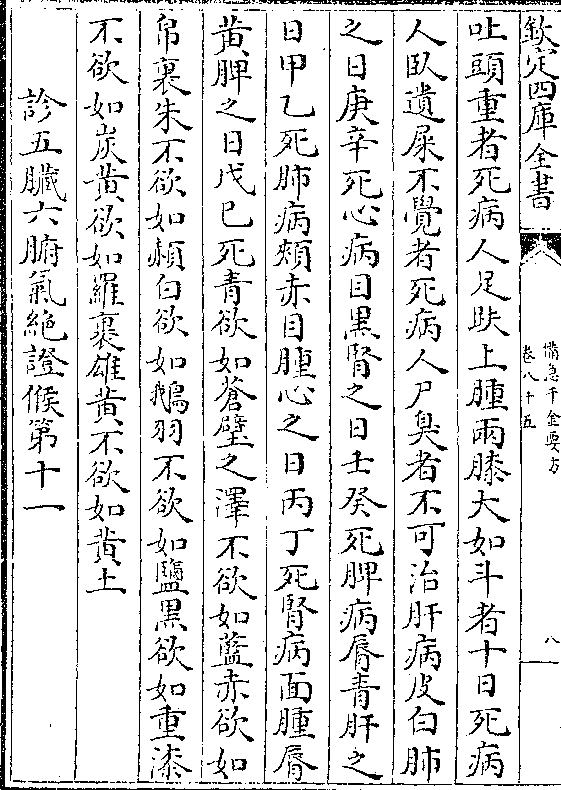 欽定四庫全書
備急千金要方
卷八十五
八
吐頭重者死病人足趺上腫兩膝大如斗者十日死病
人臥遺屎不覺者死病人尸臭者不可治肝病皮白肺
之日庚辛死心病目黑腎之日壬癸死脾病脣青肝之
日甲乙死肺病頰赤目腫心之日丙丁死腎病面腫脣
黃脾之日戊已死青欲如蒼璧之澤不欲如藍赤欲如
帛裹朱不欲如頳白欲如鵝羽不欲如鹽黑欲如重漆
不欲如炭黃欲如羅裹雄黃不欲如黃土
診五臟六腑氣絶證候第十一